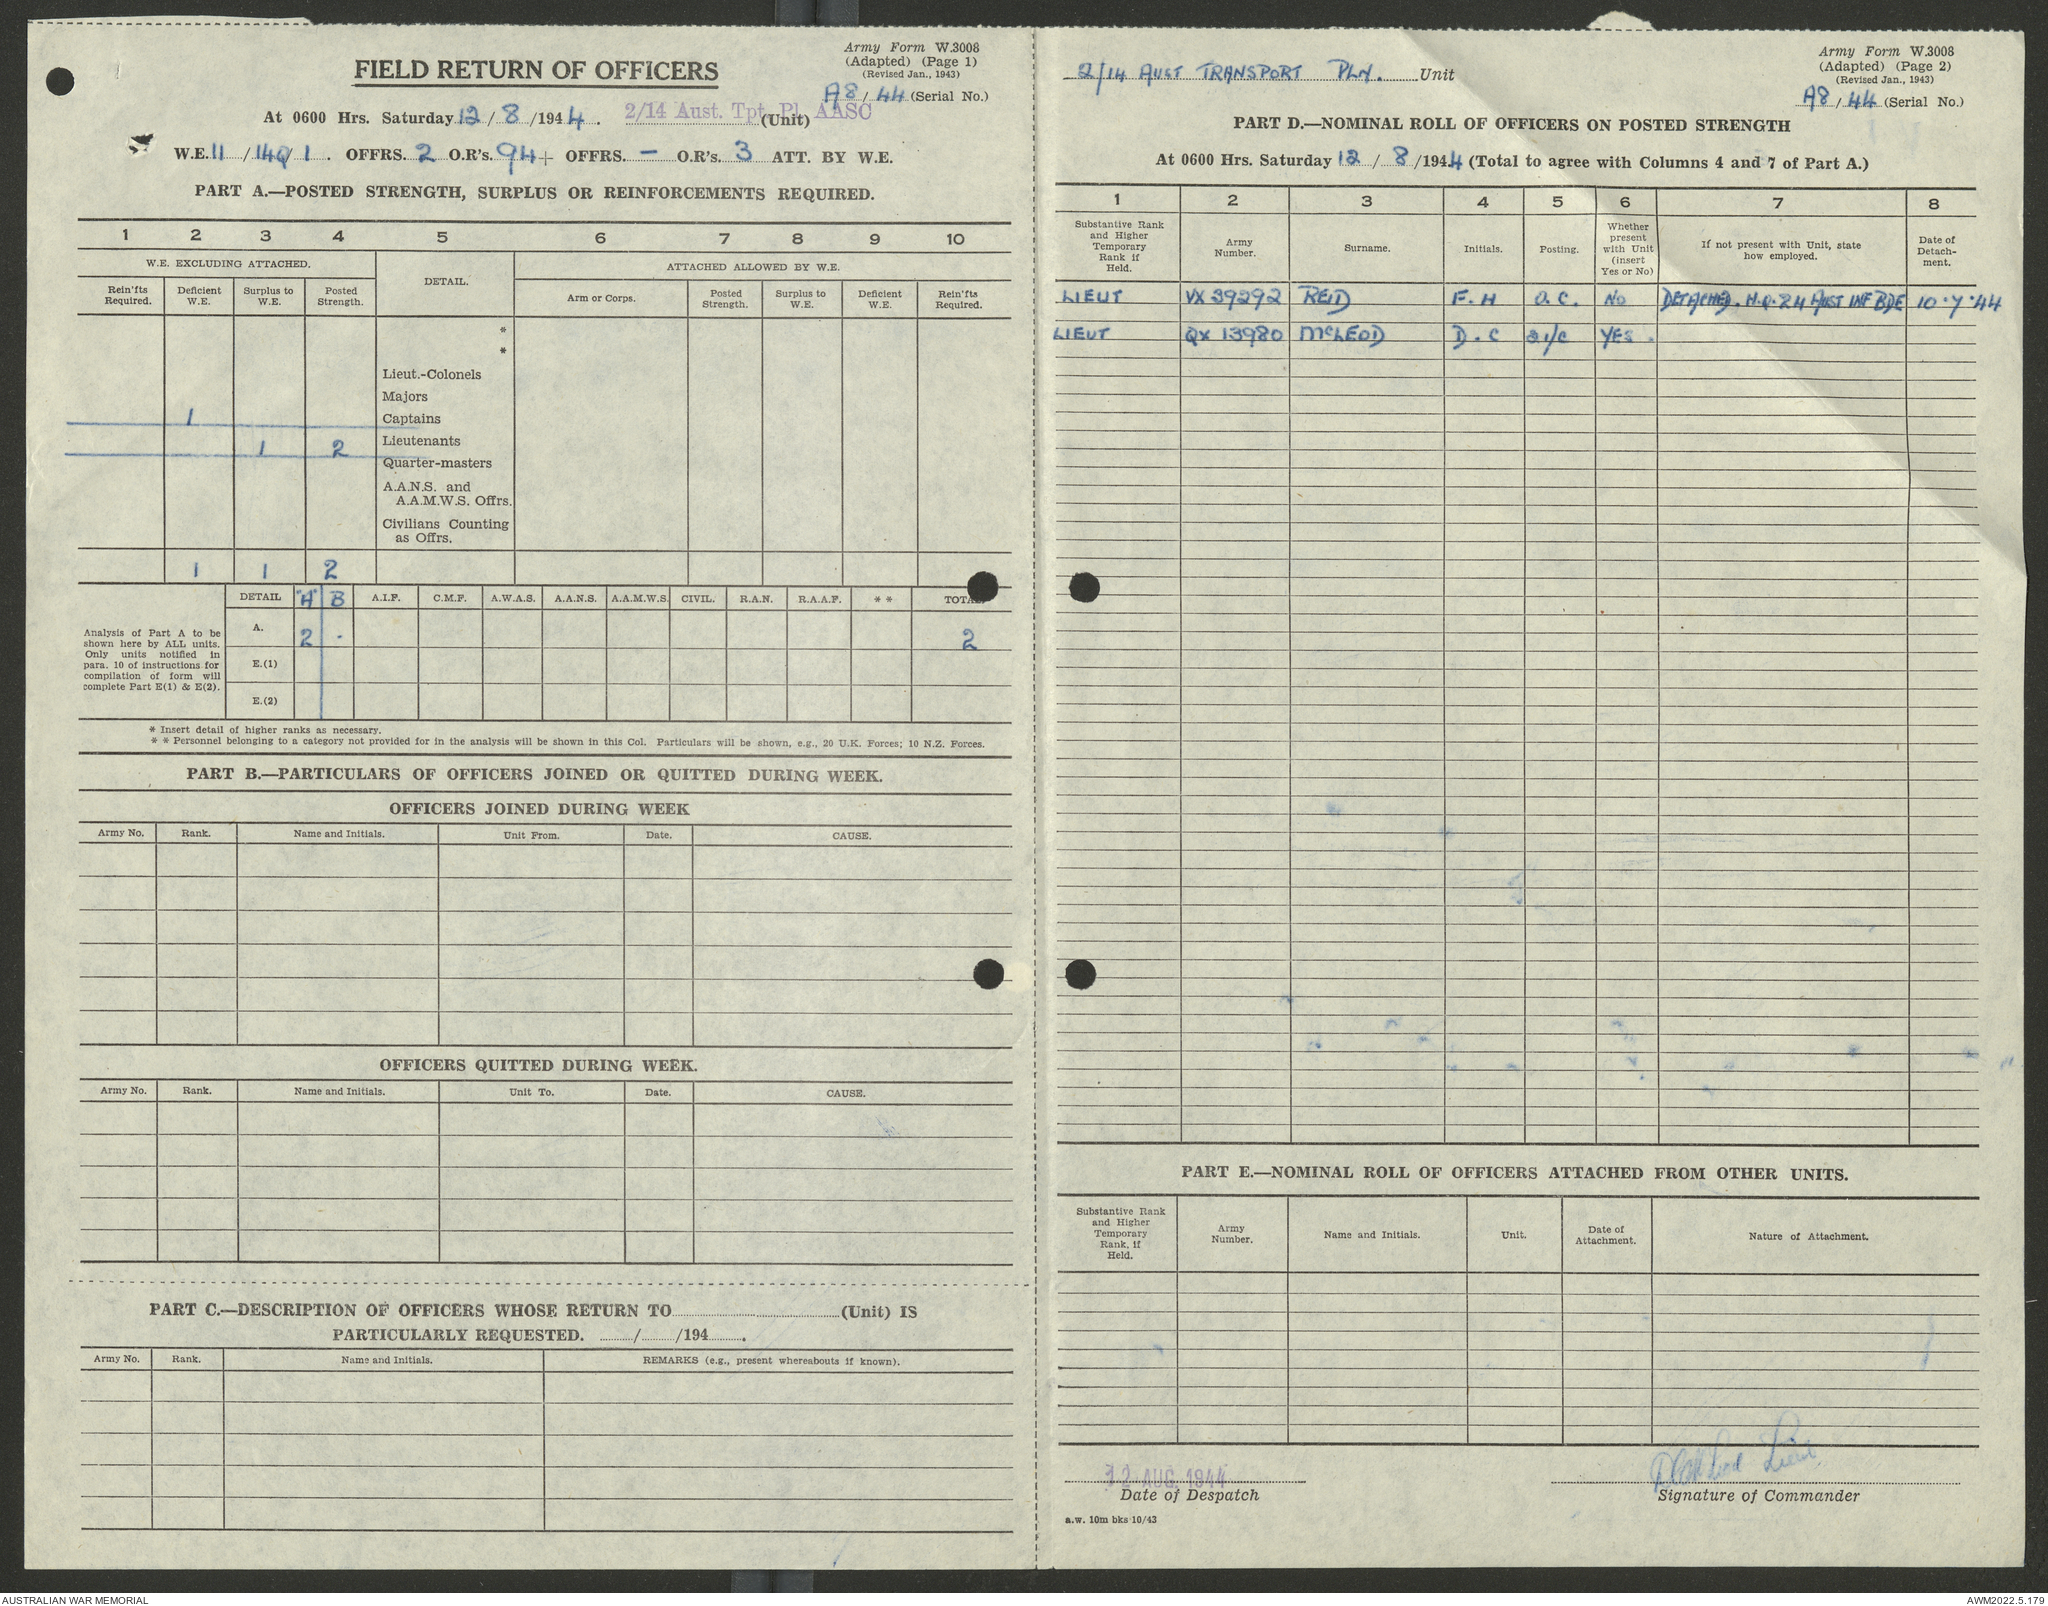 Army Form W.3008
(Adapted) (Page 1)
(Revised Jan., 1943)
FIELD RETURN OF OFFICERS
A8 / 44 (Serial No.)
At 0600 Hrs. Saturday 12 / 8 /1944. 2/14 Aust. Tpt. Pl. AASC (Unit)
W.E. 11 / 140 / 1. OFFRS. 2 O.R's. 94 + OFFRS. - O.R's. 3 ATT. BY W.E.
PART A.—POSTED STRENGTH, SURPLUS OR REINFORCEMENTS REQUIRED.
1 2 3 4 5 6 7 8 9 10
W.E. EXCLUDING ATTACHED. DETAIL. ATTACHED ALLOWED BY W.E.
Rein'fts Required. Deficient W.E. Surplus to W.E. Posted Strength. Arm or Corps. Posted Strength. Surplus to W.E. Deficient W.E. Rein'fts Required.
*
*
Lieut.-Colonels
Majors
1 Captains
1 2 Lieutenants
Quarter-masters
A.A.N.S. and
A.A.M.W.S. Offrs.
Civilians Counting
as Offrs.
1 1 2
DETAIL "A" B A.I.F. C.M.F. A.W.A.S. A.A.N.S. A.A.M.W.S. CIVIL. R.A.N. R.A.A.F. * * TOTAL
Analysis of Part A to be
shown here by ALL units.
Only units notified in
para. 10 of instructions for
compilation of form will
complete Part E(1) & E(2).
A. 2 - 2
E.(1)
E.(2)
* Insert detail of higher ranks as necessary.
* * Personnel belonging to a category not provided for in the analysis will be shown in this Col. Particulars will be shown, e.g., 20 U.K. Forces; 10 N.Z. Forces.
PART B.—PARTICULARS OF OFFICERS JOINED OR QUITTED DURING WEEK.
OFFICERS JOINED DURING WEEK
Army No. Rank. Name and Initials. Unit From. Date. CAUSE.
OFFICERS QUITTED DURING WEEK.
Army No. Rank. Name and Initials. Unit To. Date. CAUSE.
PART C.—DESCRIPTION OF OFFICERS WHOSE RETURN TO (Unit) IS
PARTICULARLY REQUESTED. / /194 .
Army No. Rank. Name and Initials. REMARKS (e.g., present whereabouts if known).
Army Form W.3008
(Adapted) (Page 2)
(Revised Jan., 1943)
2/14 AUST TRANSPORT PLN. Unit
A8 / 44 (Serial No.)
PART D.—NOMINAL ROLL OF OFFICERS ON POSTED STRENGTH
At 0600 Hrs. Saturday 12 / 8 /1944 (Total to agree with Columns 4 and 7 of Part A.)
1 2 3 4 5 6 7 8
Substantive Rank and Higher Temporary Rank if Held. Army Number. Surname. Initials. Posting. Whether present with Unit (insert Yes or No) If not present with Unit, state how employed. Date of Detachment.
LIEUT VX 39292 REID F. H O.C. NO DETACHED. H.Q. 24 AUST INF BDE 10.7.44
LIEUT QX 13980 McLEOD D. C 2i/c YES.
PART E.—NOMINAL ROLL OF OFFICERS ATTACHED FROM OTHER UNITS.
Substantive Rank and Higher Temporary Rank, if Held. Army Number. Name and Initials. Unit. Date of Attachment. Nature of Attachment.
12 AUG 1944
Date of Despatch
D C McLeod Lieut
Signature of Commander
a.w. 10m bks 10/43
AUSTRALIAN WAR MEMORIAL
AWM2022.5.179